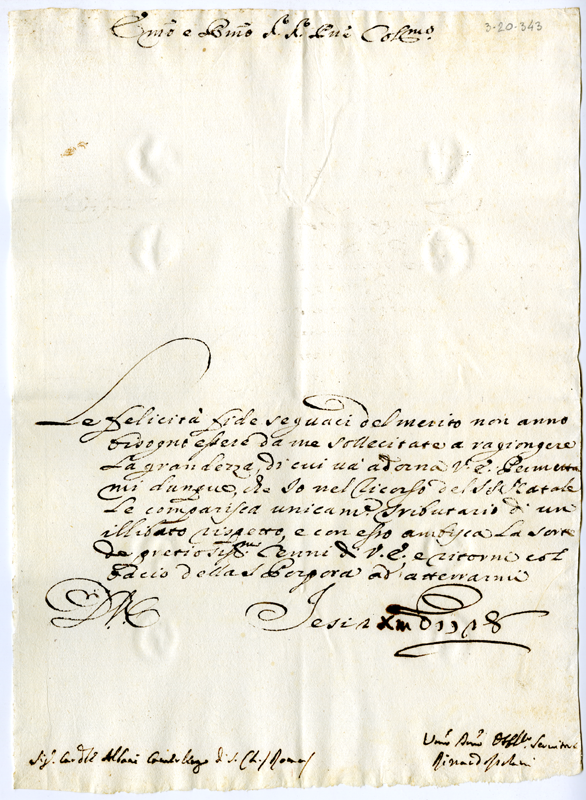 Em̃o e Rm̃o S.r S.r Pne Col.mo
3-20-343
Le felicità fide seguaci del merito non anno
bisogno essere da me sollecitate a ragiongere
La grandezza, di cui và adorna V. E. Permetta
mi dunque, che Io nel ricorso del SS. Natale
Le comparisca unicam.e tributario di un
illibato rispetto, e con esso ambisca La sorte
de pretiosiss.mi Cenni di V. E., e ritorni col
bacio della S. Porpora ad atterrarmi
D. V. E.
Jesi
Sig. Card.le Albani Camerlengo di S. Ch. / Roma /
Um.o Dm.o Obbl.mo Servitore